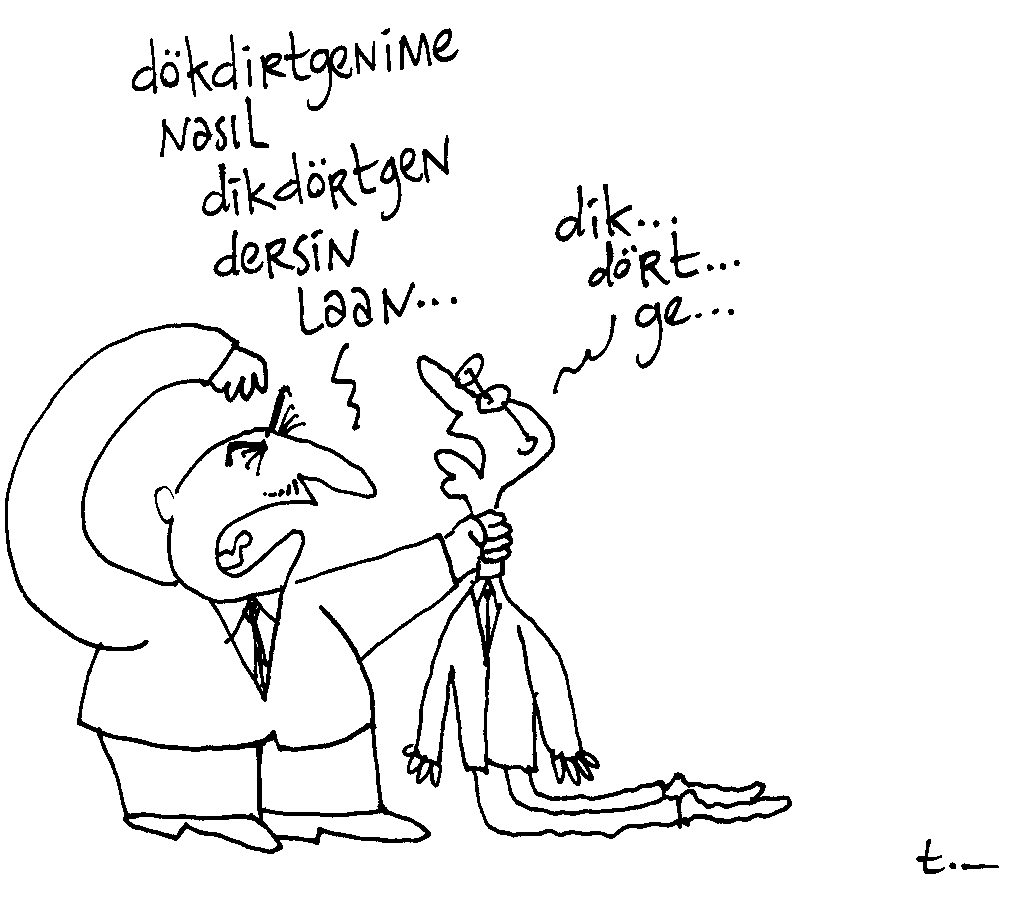 dökdirtgenime
nasıl
dikdörtgen
dersin
laan...
dik...
dört...
ge...
t.–